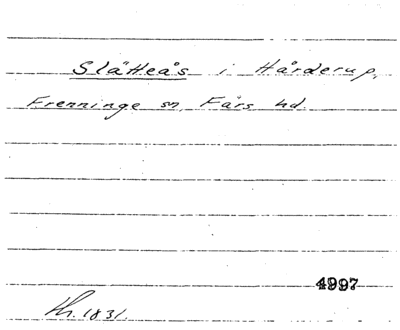 Slätteås i Hårderup,
Frenninge sn, Färs hd.
4997
Kh. 1831.